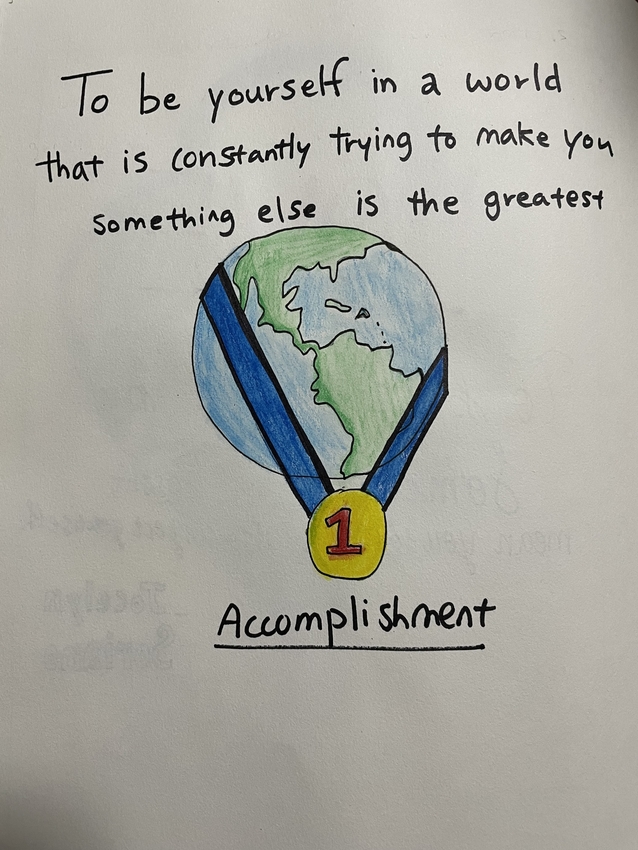 To be yourself in a world
that is constantly trying to make you
something else is the greatest
1
Accomplishment